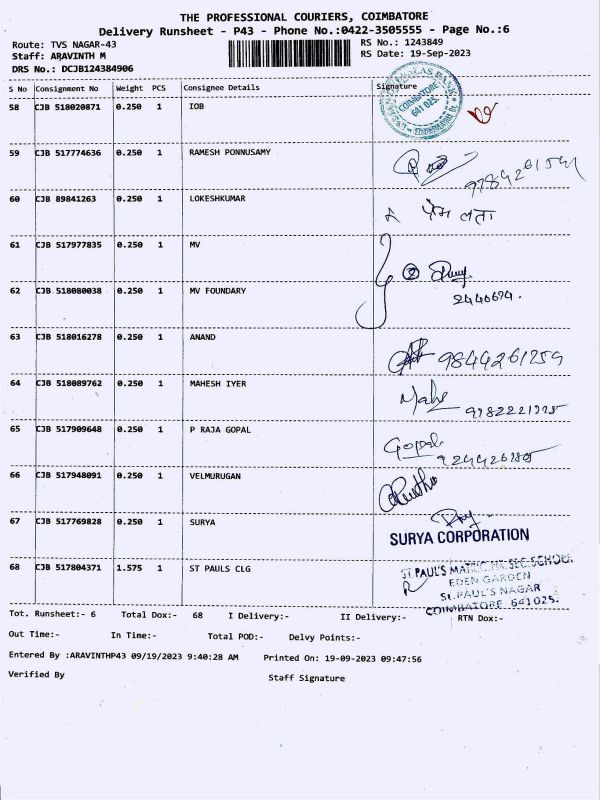 THE PROFESSIONAL COURIERS, COIMBATORE
Delivery Runsheet - P43 - Phone No.:0422-3505555 - Page No.:6
Route: TVS NAGAR-43
RS No.: 1243849
Staff: ARAVINTH M
RS Date: 19-Sep-2023
DRS No.: DCJB124384906
S No Consignment No Weight PCS Consignee Details Signature
58 CJB 518020871 0.250 1 IOB
COIMBATORE
641 025.
59 CJB 517774636 0.250 1 RAMESH PONNUSAMY
60 CJB 89841263 0.250 1 LOKESHKUMAR
प्रेम लता
61 CJB 517977835 0.250 1 MV
62 CJB 518080038 0.250 1 MV FOUNDARY
2440674.
63 CJB 518016278 0.250 1 ANAND
9844261259
64 CJB 518089762 0.250 1 MAHESH IYER
65 CJB 517909648 0.250 1 P RAJA GOPAL
Gopal
66 CJB 517948091 0.250 1 VELMURUGAN
67 CJB 517769828 0.250 1 SURYA
SURYA CORPORATION
68 CJB 517804371 1.575 1 ST PAULS CLG
ST.PAUL'S MATRIC.HR.SEC.SCHOOL
EDEN GARDEN
St.PAUL'S NAGAR
COIMBATORE 641 025.
Tot. Runsheet:- 6 Total Dox:- 68 I Delivery:- II Delivery:- RTN Dox:-
Out Time:- In Time:- Total POD:- Delvy Points:-
Entered By :ARAVINTHP43 09/19/2023 9:40:28 AM Printed On: 19-09-2023 09:47:56
Verified By Staff Signature